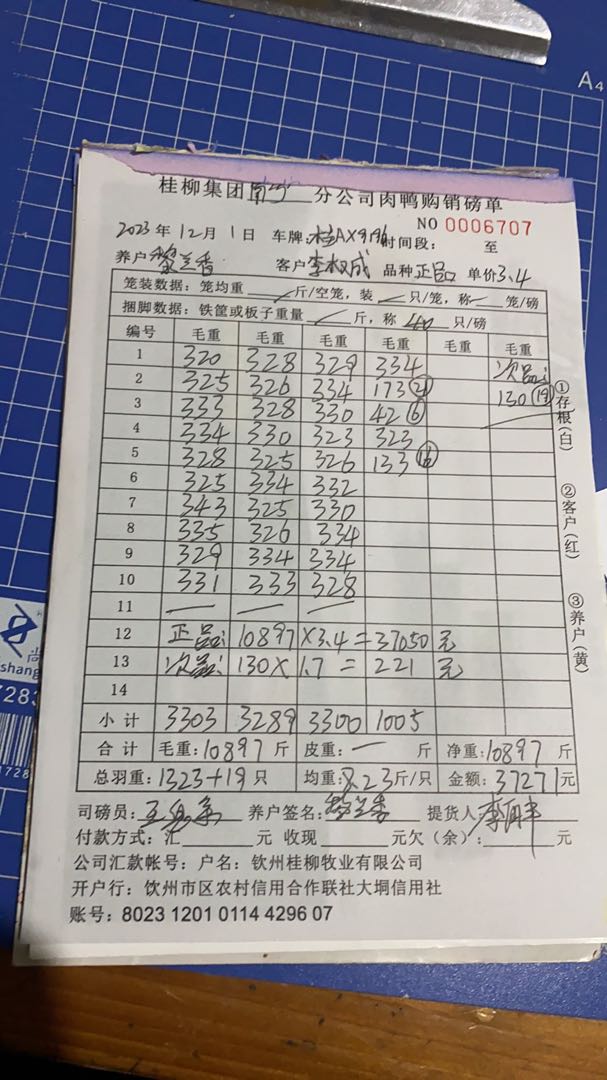 A4
桂柳集团南宁分公司肉鸭购销磅单
NO 0006707
2023年12月1日 车牌:桂AX9796时间段: 至
养户黎兰香 客户李权成 品种正品 单价3.4
笼装数据: 笼均重 斤/空笼,装 只/笼,称 笼/磅
捆脚数据: 铁筐或板子重量 斤,称 40 只/磅
编号 毛重 毛重 毛重 毛重 毛重 毛重
1 320 328 329 334 次品:
2 325 326 334 173(21) 130(19)
3 333 328 330 42(6)
4 334 330 323 323
5 328 325 326 133(16)
6 325 334 332
7 343 325 330
8 335 326 334
9 329 334 334
10 331 333 328
11 — — —
12 正品: 10897×3.4=37050元
13 次品: 130×1.7=221元
14
小计 3303 3289 3300 1005
合计 毛重:10897斤 皮重:—斤 净重:10897斤
总羽重:1323+19只 均重:8.23斤/只 金额:37271元
司磅员: 养户签名:黎兰香 提货人:
付款方式:汇 元 收现 元欠(余): 元
公司汇款帐号: 户名: 钦州桂柳牧业有限公司
开户行: 钦州市区农村信用合作联社大垌信用社
账号: 8023 1201 0114 4296 07
①存根(白)
②客户(红)
③养户(黄)
尚
shang
7283
1728